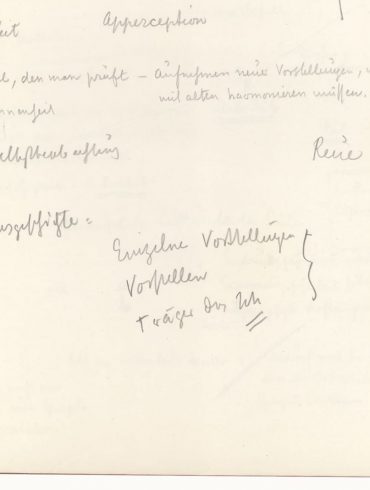 eit
Apperception
el, den man prüft – Aufnehmen neue Vorstellungen,
mit alten harmonieren müssen.
Selbstbeobachtung
Reue
Einzelne Vorstellungen
Vorstellen
Träger des Ich